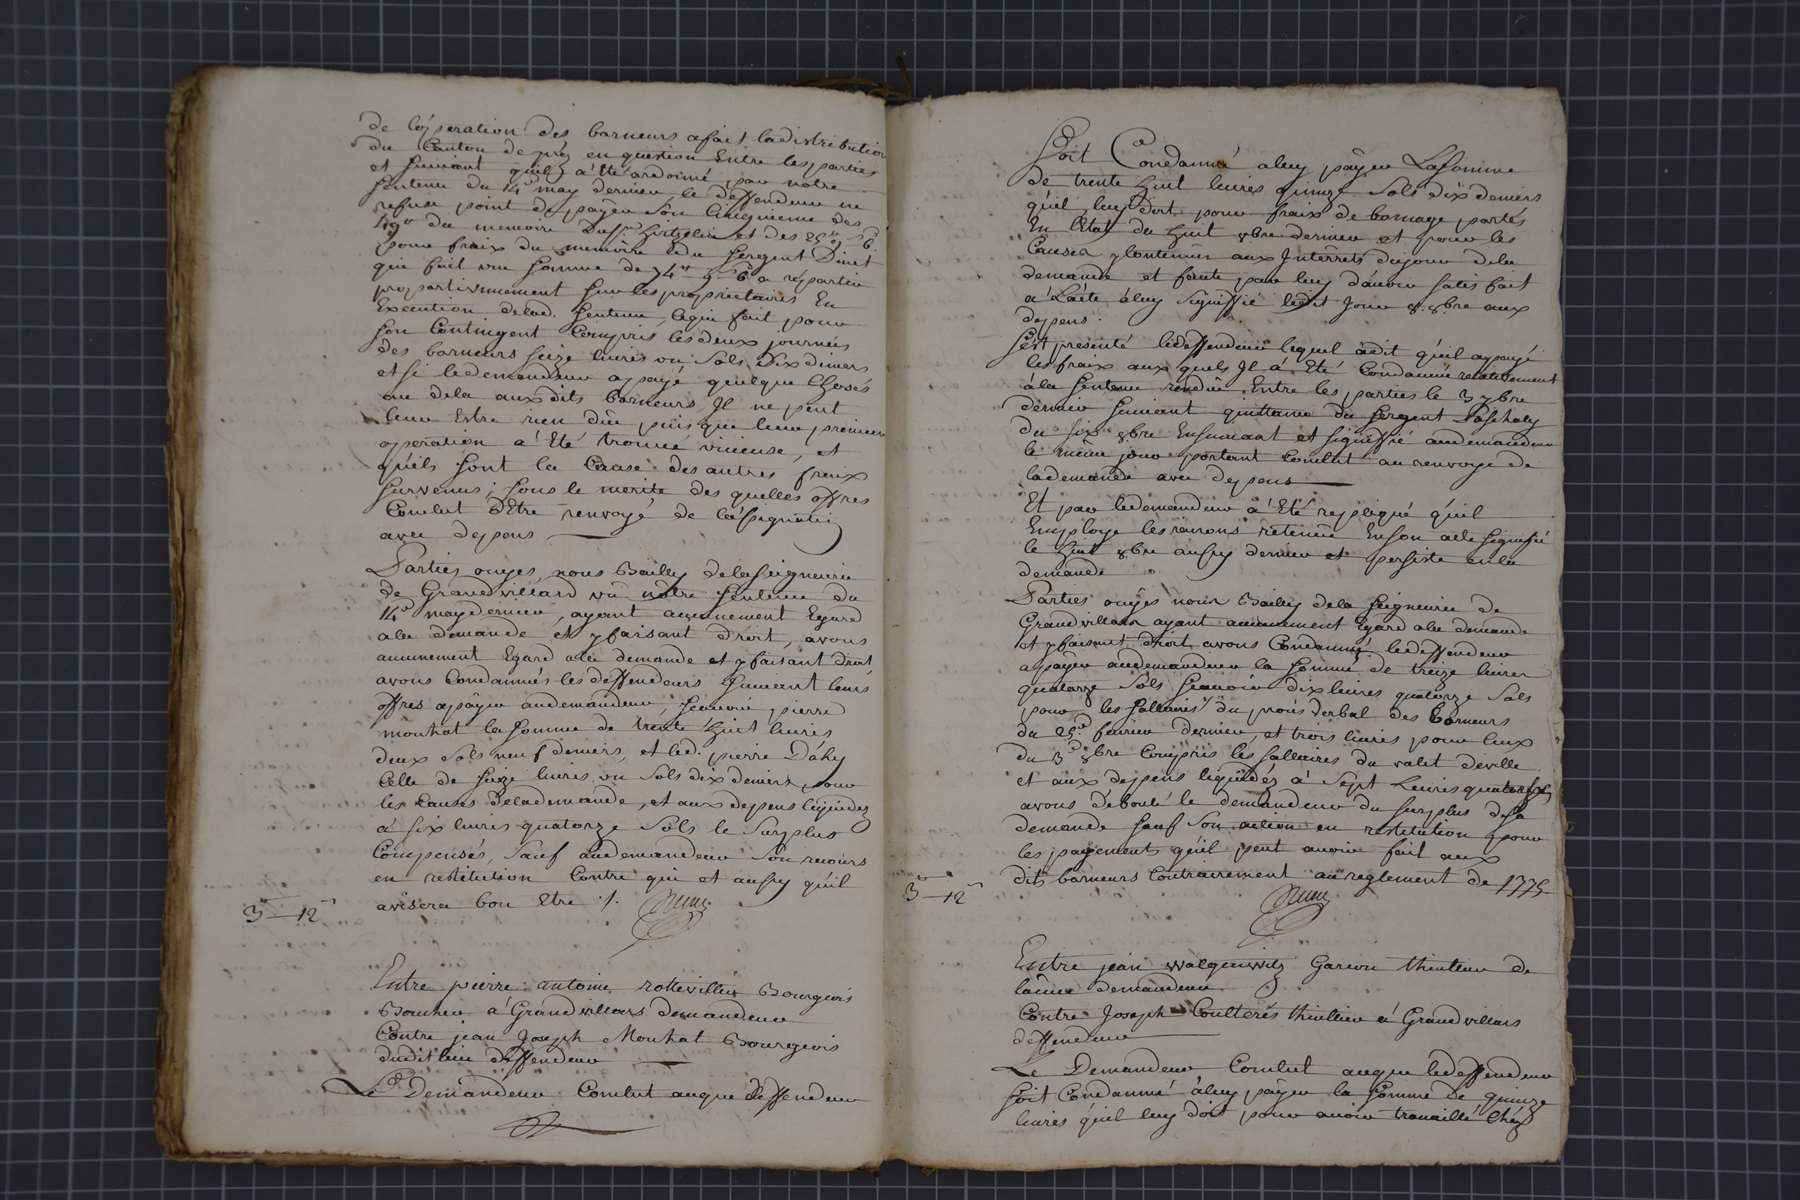 de l'operation des borneurs a fait la distribution
du Canton de préz en question Entre les parties
et suivant qu'il a Eté ordonné par notre
sentence du 14e may dernier le deffendeur ne
refuse point de payer son cinquieme des
49tt du memoire du Sr et des 25tt
pour frais du memoire du sergent Dinet
qui fait une somme de 74tt a repartir
proportionnement sur les proprietaires En
Execution de lad. sentence, ce qui fait pour
son Contingent Compris les deux journées
des borneurs seize livres un sols dix deniers
et si le demandeur a payé quelque Choses
au dela aux dits borneurs Il ne peut
leur Estre rien dûe puis que leur premiere
operation a Eté trouvée vicieuse, et
qu'ils sont la Cause des autres fraix
survenus; sous le merite des quelles offres
Conclut d'Etre renvoyé de l'assignation
avec depens
Parties ouyes, nous Bailly de la seigneurie
de Grandvillard vû nôtre sentence du
14e may dernier, ayant aucunement Egard
a la demande et y faisant droit, avons
aucunement Egard a la demande et y faisant droit
avons Condamnés les deffendeurs suivant leurs
offres a payer au demandeur, sçavoir pierre
mouhat la somme de trente huit livres
deux sols neuf deniers, et led. pierre Dahy
Celle de seize livres un sols dix deniers pour
les Causes de la demande, et aux depens liquidez
à six livres quatorze sols le surplus
Compensés, sauf au demandeur son recours
en restitution Contre qui et ainsy qu'il
avisera bon Etre ./.
3tt—12s
Entre pierre antoine rottevillier Bourgeois
Boucher à Grandvillars demandeur
Contre jean Joseph Mouhat Bourgeois
dudit lieu deffendeur
Le Demandeur Conclut a ce que le deffendeur
soit Condamné a luy payer La somme
de trente huit livres quinze sols dix deniers
qu'il luy doit pour fraix de bornage portés
En l'Etat du huit 8bre dernier et pour les
Causes y Contenües aux Interrets du jour de la
demande et faute par luy d'avoir satisfait
a L'acte à luy signiffié ledit Jour 8. 8bre aux
depens.
s'est presenté le deffendeur lequel a dit qu'il a payé
les fraix aux quels Il a Eté Condamné relativement
à la sentence rendüe Entre les parties le 3 7bre
dernier suivant quittance du sergent
du six 8bre Ensuivant et signiffié au demandeur
le même jour partant Conclut au renvoye de
la demande avec depens
Et par le demandeur a Eté repliqué qu'il
Employe les raisons retenües En son acte signifié
le huit 8bre aussy dernier et persiste en la
demande
Parties ouyes nous Bailly de la seigneurie de
Grandvillars ayant aucunement Egard a la demande
et y faisant droit avons Condamné le deffendeur
a payer au demandeur la somme de treize livres
quatorze sols scavoir dix livres quatorze sols
pour les sallaires du procés verbal des Borneurs
du 25e fevrier dernier, et trois livres pour Ceux
du 3e 8bre Compris les sallaires du valet de ville
et aux depens liquidéz à sept Livres quatorze s.
avons débouté le demandeur du surplus de sa
demande sauf son action en restitution pour
les payements qu'il peut avoir fait aux
dits borneurs Contrairement au reglement de 1775
3tt—12s
Entre jean Garcon thuilier de
demandeur
Contre Joseph Coulterés thuillier à Grandvillars
deffendeur
Le Demandeur Conclut a ce que le deffendeur
soit Condamné à luy payer la somme de quinze
livres qu'il luy doit pour avoir travaillé Chéz